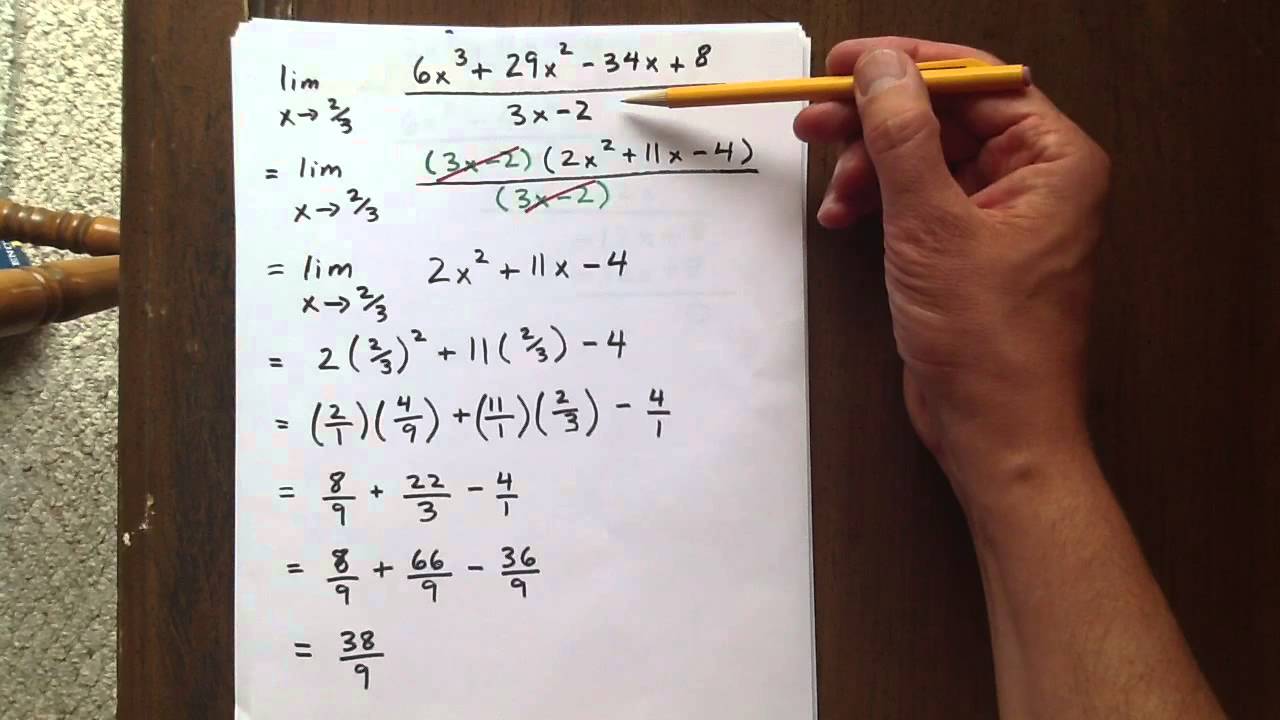 lim x→2/3 (6x³ + 29x² - 34x + 8)/(3x - 2)
= lim x→2/3 (3x - 2)(2x² + 11x - 4)/(3x - 2)
= lim x→2/3 2x² + 11x - 4
= 2(2/3)² + 11(2/3) - 4
= (2/1)(4/9) + (11/1)(2/3) - 4/1
= 8/9 + 22/3 - 4/1
= 8/9 + 66/9 - 36/9
= 38/9